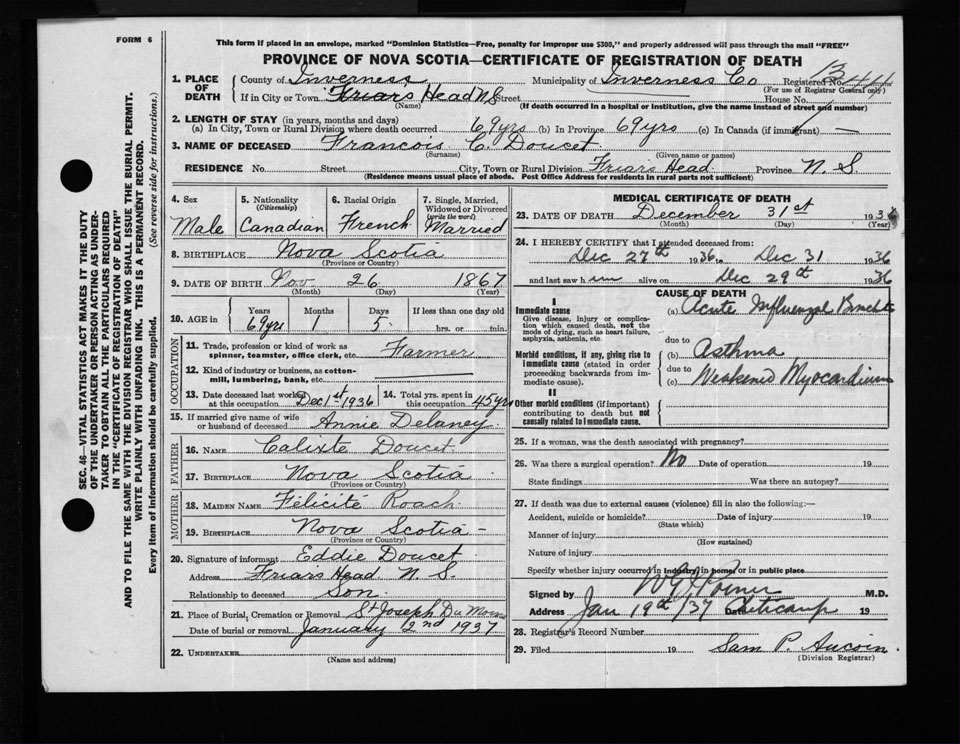 FORM 6
This form if placed in an envelope, marked "Dominion Statistics—Free, penalty for improper use $300," and properly addressed will pass through the mail "FREE"
PROVINCE OF NOVA SCOTIA—CERTIFICATE OF REGISTRATION OF DEATH
1. PLACE OF DEATH County of Inverness Municipality of Inverness Co Registered No.
(For use of Registrar General only)
If in City or Town Friars Head N.S. Street House No.
(Name) (If death occurred in a hospital or institution, give the name instead of street and number)
2. LENGTH OF STAY (in years, months and days)
(a) In City, Town or Rural Division where death occurred 69yrs (b) In Province 69yrs (c) In Canada (if immigrant) —
3. NAME OF DECEASED Francois C. Doucet
(Surname) (Given name or names)
RESIDENCE No. Street City, Town or Rural Division Friars Head Province N. S.
(Residence means usual place of abode. Post Office Address for residents in rural parts not sufficient)
4. Sex Male
5. Nationality (Citizenship) Canadian
6. Racial Origin French
7. Single, Married, Widowed or Divorced (write the word) Married
8. BIRTHPLACE Nova Scotia
(Province or Country)
9. DATE OF BIRTH Nov 26 1867
(Month) (Day) (Year)
10. AGE in Years 69yrs Months 1 Days 5 If less than one day old hrs. or min.
OCCUPATION
11. Trade, profession or kind of work as spinner, teamster, office clerk, etc. Farmer
12. Kind of industry or business, as cotton-mill, lumbering, bank, etc.
13. Date deceased last worked at this occupation Dec 1st 1936
14. Total yrs. spent in this occupation 45yrs
15. If married give name of wife or husband of deceased Annie Delaney
FATHER
16. NAME Calixte Doucet
17. BIRTHPLACE Nova Scotia
(Province or Country)
MOTHER
18. MAIDEN NAME Félicité Roach
19. BIRTHPLACE Nova Scotia
(Province or Country)
20. Signature of informant Eddie Doucet
Address Friars Head N. S.
Relationship to deceased Son
21. Place of Burial, Cremation or Removal St Joseph Du Moine
Date of burial or removal January 2nd 1937
22. UNDERTAKER
(Name and address)
MEDICAL CERTIFICATE OF DEATH
23. DATE OF DEATH December 31st 1936
(Month) (Day) (Year)
24. I HEREBY CERTIFY that I attended deceased from:
Dec 27th 1936 to Dec 31 1936
and last saw him alive on Dec 29th 1936
CAUSE OF DEATH
I
Immediate cause
Give disease, injury or complication which caused death, not the mode of dying, such as heart failure, asphyxia, asthenia, etc.
(a) Acute Influenzal
due to
Morbid conditions, if any, giving rise to immediate cause (stated in order proceeding backwards from immediate cause).
(b) Asthma
due to
(c) Weakened Myocardium
II
Other morbid conditions (if important) contributing to death but not causally related to immediate cause.
25. If a woman, was the death associated with pregnancy?
26. Was there a surgical operation? No Date of operation 19
State findings Was there an autopsy?
27. If death was due to external causes (violence) fill in also the following:—
Accident, suicide or homicide? Date of injury 19
(State which)
Manner of injury
(How sustained)
Nature of injury
Specify whether injury occurred in industry, in home, or in public place
Signed by M.D.
Address Jan 19th/37 Date Cheticamp 19
28. Registrar's Record Number
29. Filed 19 Sam P. Aucoin
(Division Registrar)
SEC. 46—VITAL STATISTICS ACT MAKES IT THE DUTY
OF THE UNDERTAKER OR PERSON ACTING AS UNDERTAKER TO OBTAIN ALL THE PARTICULARS REQUIRED
IN THE "CERTIFICATE OF REGISTRATION OF DEATH"
AND TO FILE THE SAME WITH THE DIVISION REGISTRAR WHO SHALL ISSUE THE BURIAL PERMIT.
WRITE PLAINLY WITH UNFADING INK. THIS IS A PERMANENT RECORD.
Every item of information should be carefully supplied. (See reverse side for instructions.)